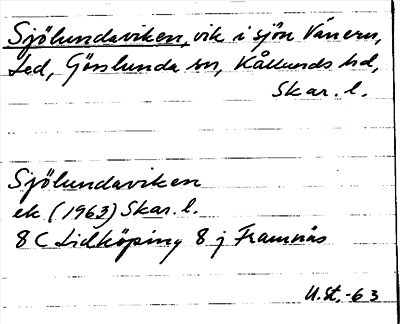 Sjölundaviken, vik i sjön Vänern,
Led, Gösslunda sn, Kållands hd,
Skar. l.
Sjölundaviken
ek (1963) Skar. l.
8 C Lidköping 8 j Framnäs
U.St.-63